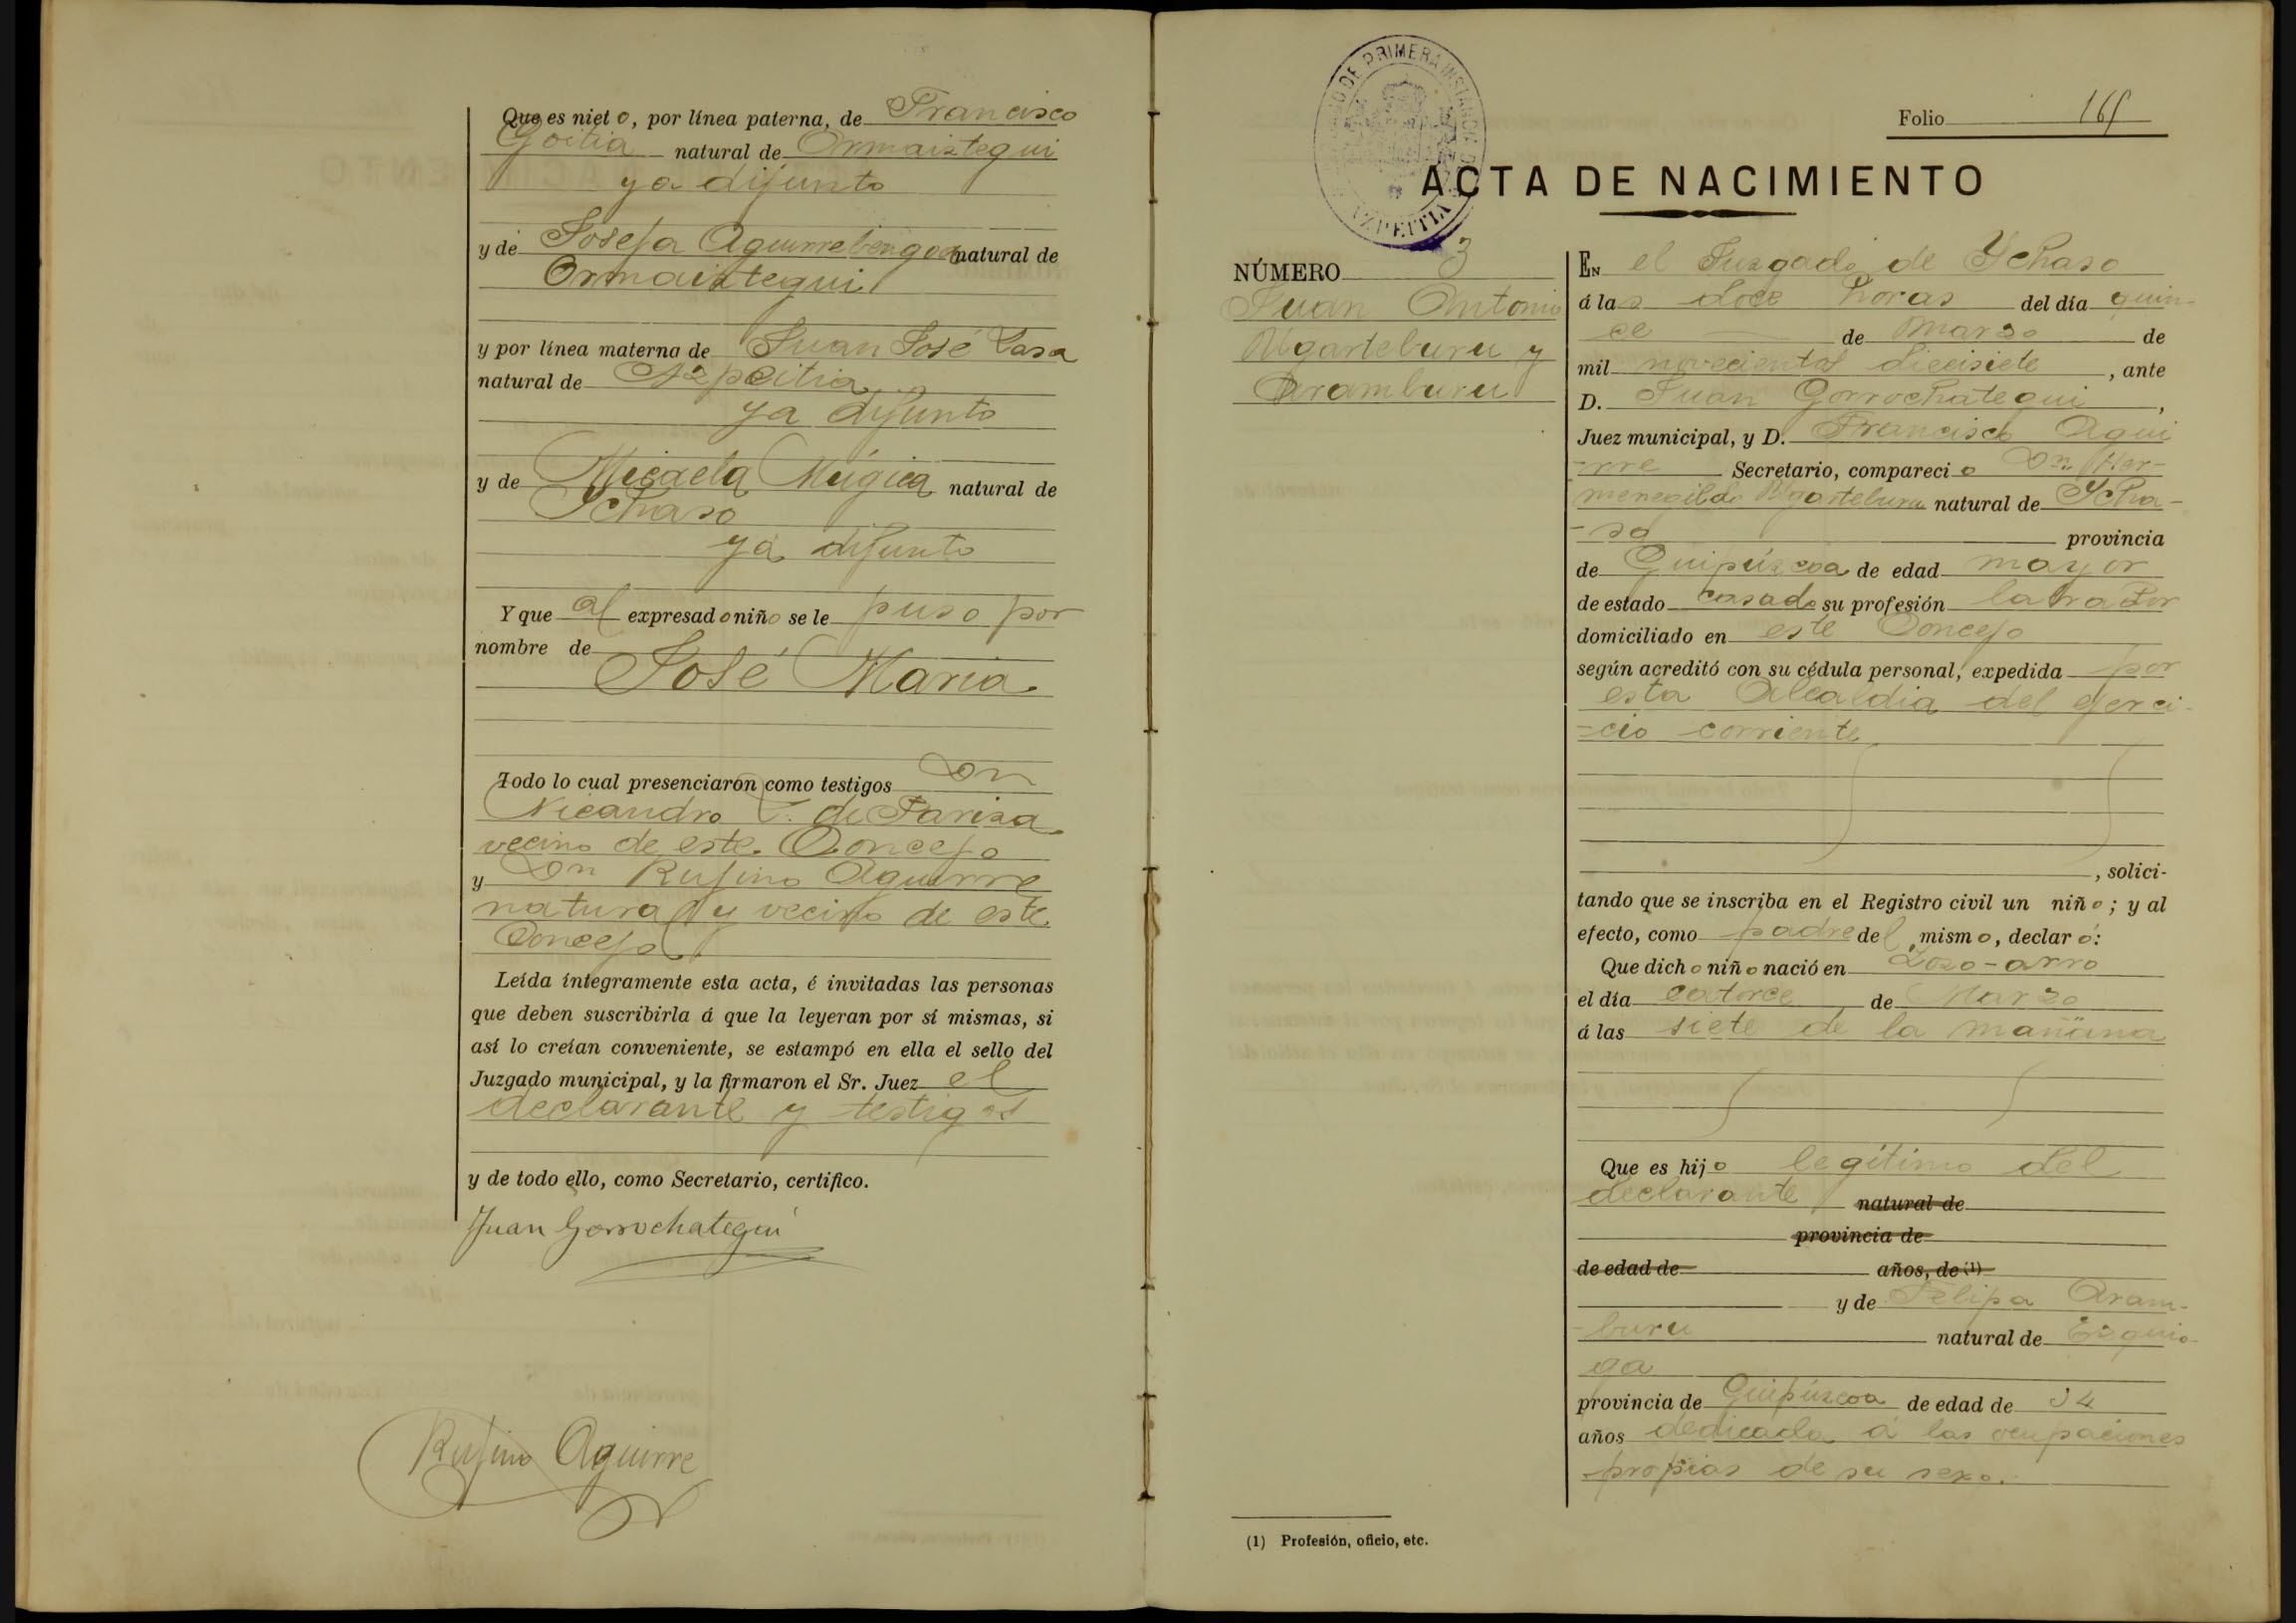 Que es nieto, por línea paterna, de Francisco
Goitia natural de Ormaiztegui
ya difunto
y de Josefa Aguirrebengoa natural de
Ormaiztegui
y por línea materna de Juan José Lasa
natural de Azpeitia
ya difunto
y de Micaela Múgica natural de
Ychaso
ya difunto
Y que al expresado niño se le puso por
nombre de
José Maria
Todo lo cual presenciaron como testigos Dn
Nicandro de Pariza
vecino de este Concejo
y Dn Rufino Aguirre
natural y vecino de este
Concejo
Leída íntegramente esta acta, é invitadas las personas
que deben suscribirla á que la leyeran por sí mismas, si
así lo creían conveniente, se estampó en ella el sello del
Juzgado municipal, y la firmaron el Sr. Juez el
declarante y testigos
y de todo ello, como Secretario, certifico.
Juan Gorrochategui
Rufino Aguirre
JUZGADO DE PRIMERA INSTANCIA DE
AZPEITIA
Folio
ACTA DE NACIMIENTO
NÚMERO 3
Juan Antonio
Ugarteburu y
Aramburu
EN el Juzgado de Ychaso
á las doce horas del día quin-
ce de Marzo de
mil novecientos diecisiete, ante
D. Juan Gorrochategui,
Juez municipal, y D. Francisco Agui
-rre Secretario, compareció Dn. Her-
menegildo Ugarteburu natural de Ycha-
-so provincia
de Guipúzcoa de edad mayor
de estado casado su profesión labrador
domiciliado en este Concejo
según acreditó con su cédula personal, expedida por
esta Alcaldia del ejerci-
=cio corriente
, solici-
tando que se inscriba en el Registro civil un niño; y al
efecto, como padre del mismo, declaró:
Que dicho niño nació en Lozo-arro
el día catorce de Marzo
á las siete de la mañana
Que es hijo legítimo del
declarante natural de
provincia de
de edad de años, de (1)
y de Felipa Aram-
-buru natural de Ezquio-
ga
provincia de Guipúzcoa de edad de 34
años dedicada á las ocupaciones
propias de su sexo.
(1) Profesión, oficio, etc.